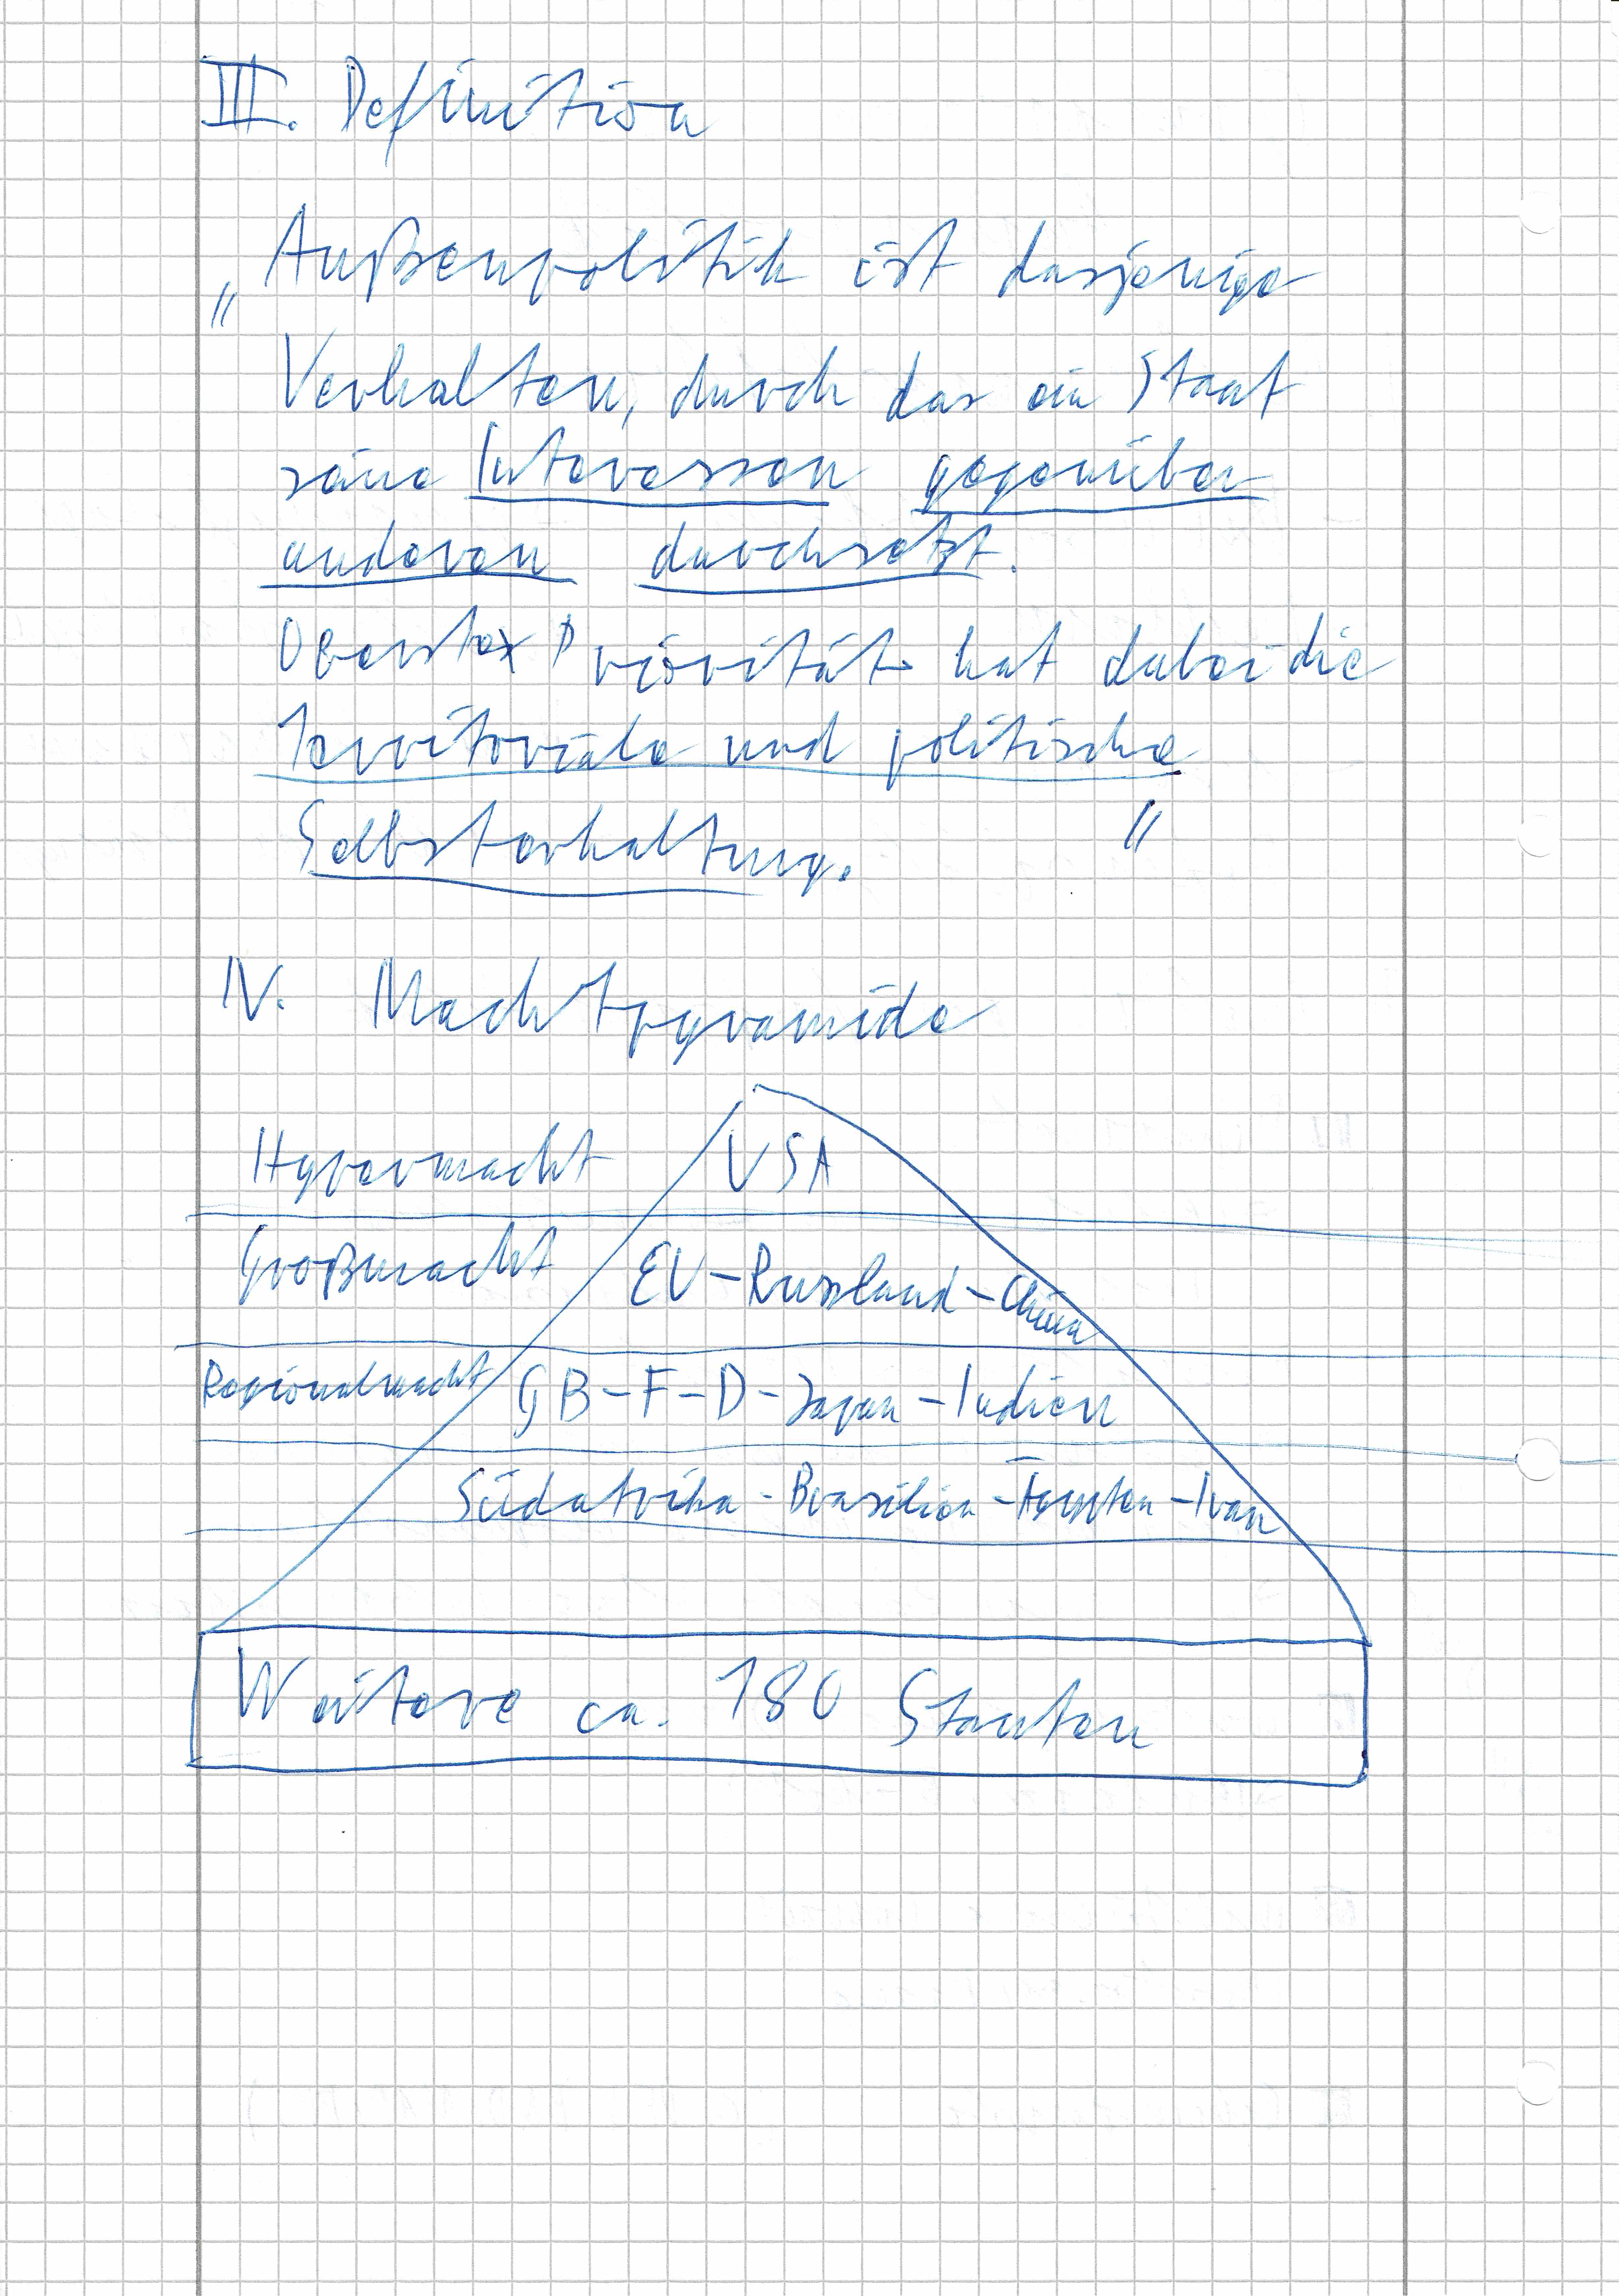 III. Definition
„Außenpolitik ist dasjenige
Verhalten, durch das ein Staat
seine Interessen gegenüber
anderen durchsetzt.
Oberste Priorität hat dabei die
territoriale und politische
Selbsterhaltung."
IV. Machtpyramide
Hypermacht USA
Großmacht EU-Russland-China
Regionalmacht GB-F-D-Japan-Indien
Südafrika-Brasilien-Ägypten-Iran
Weitere ca. 180 Staaten